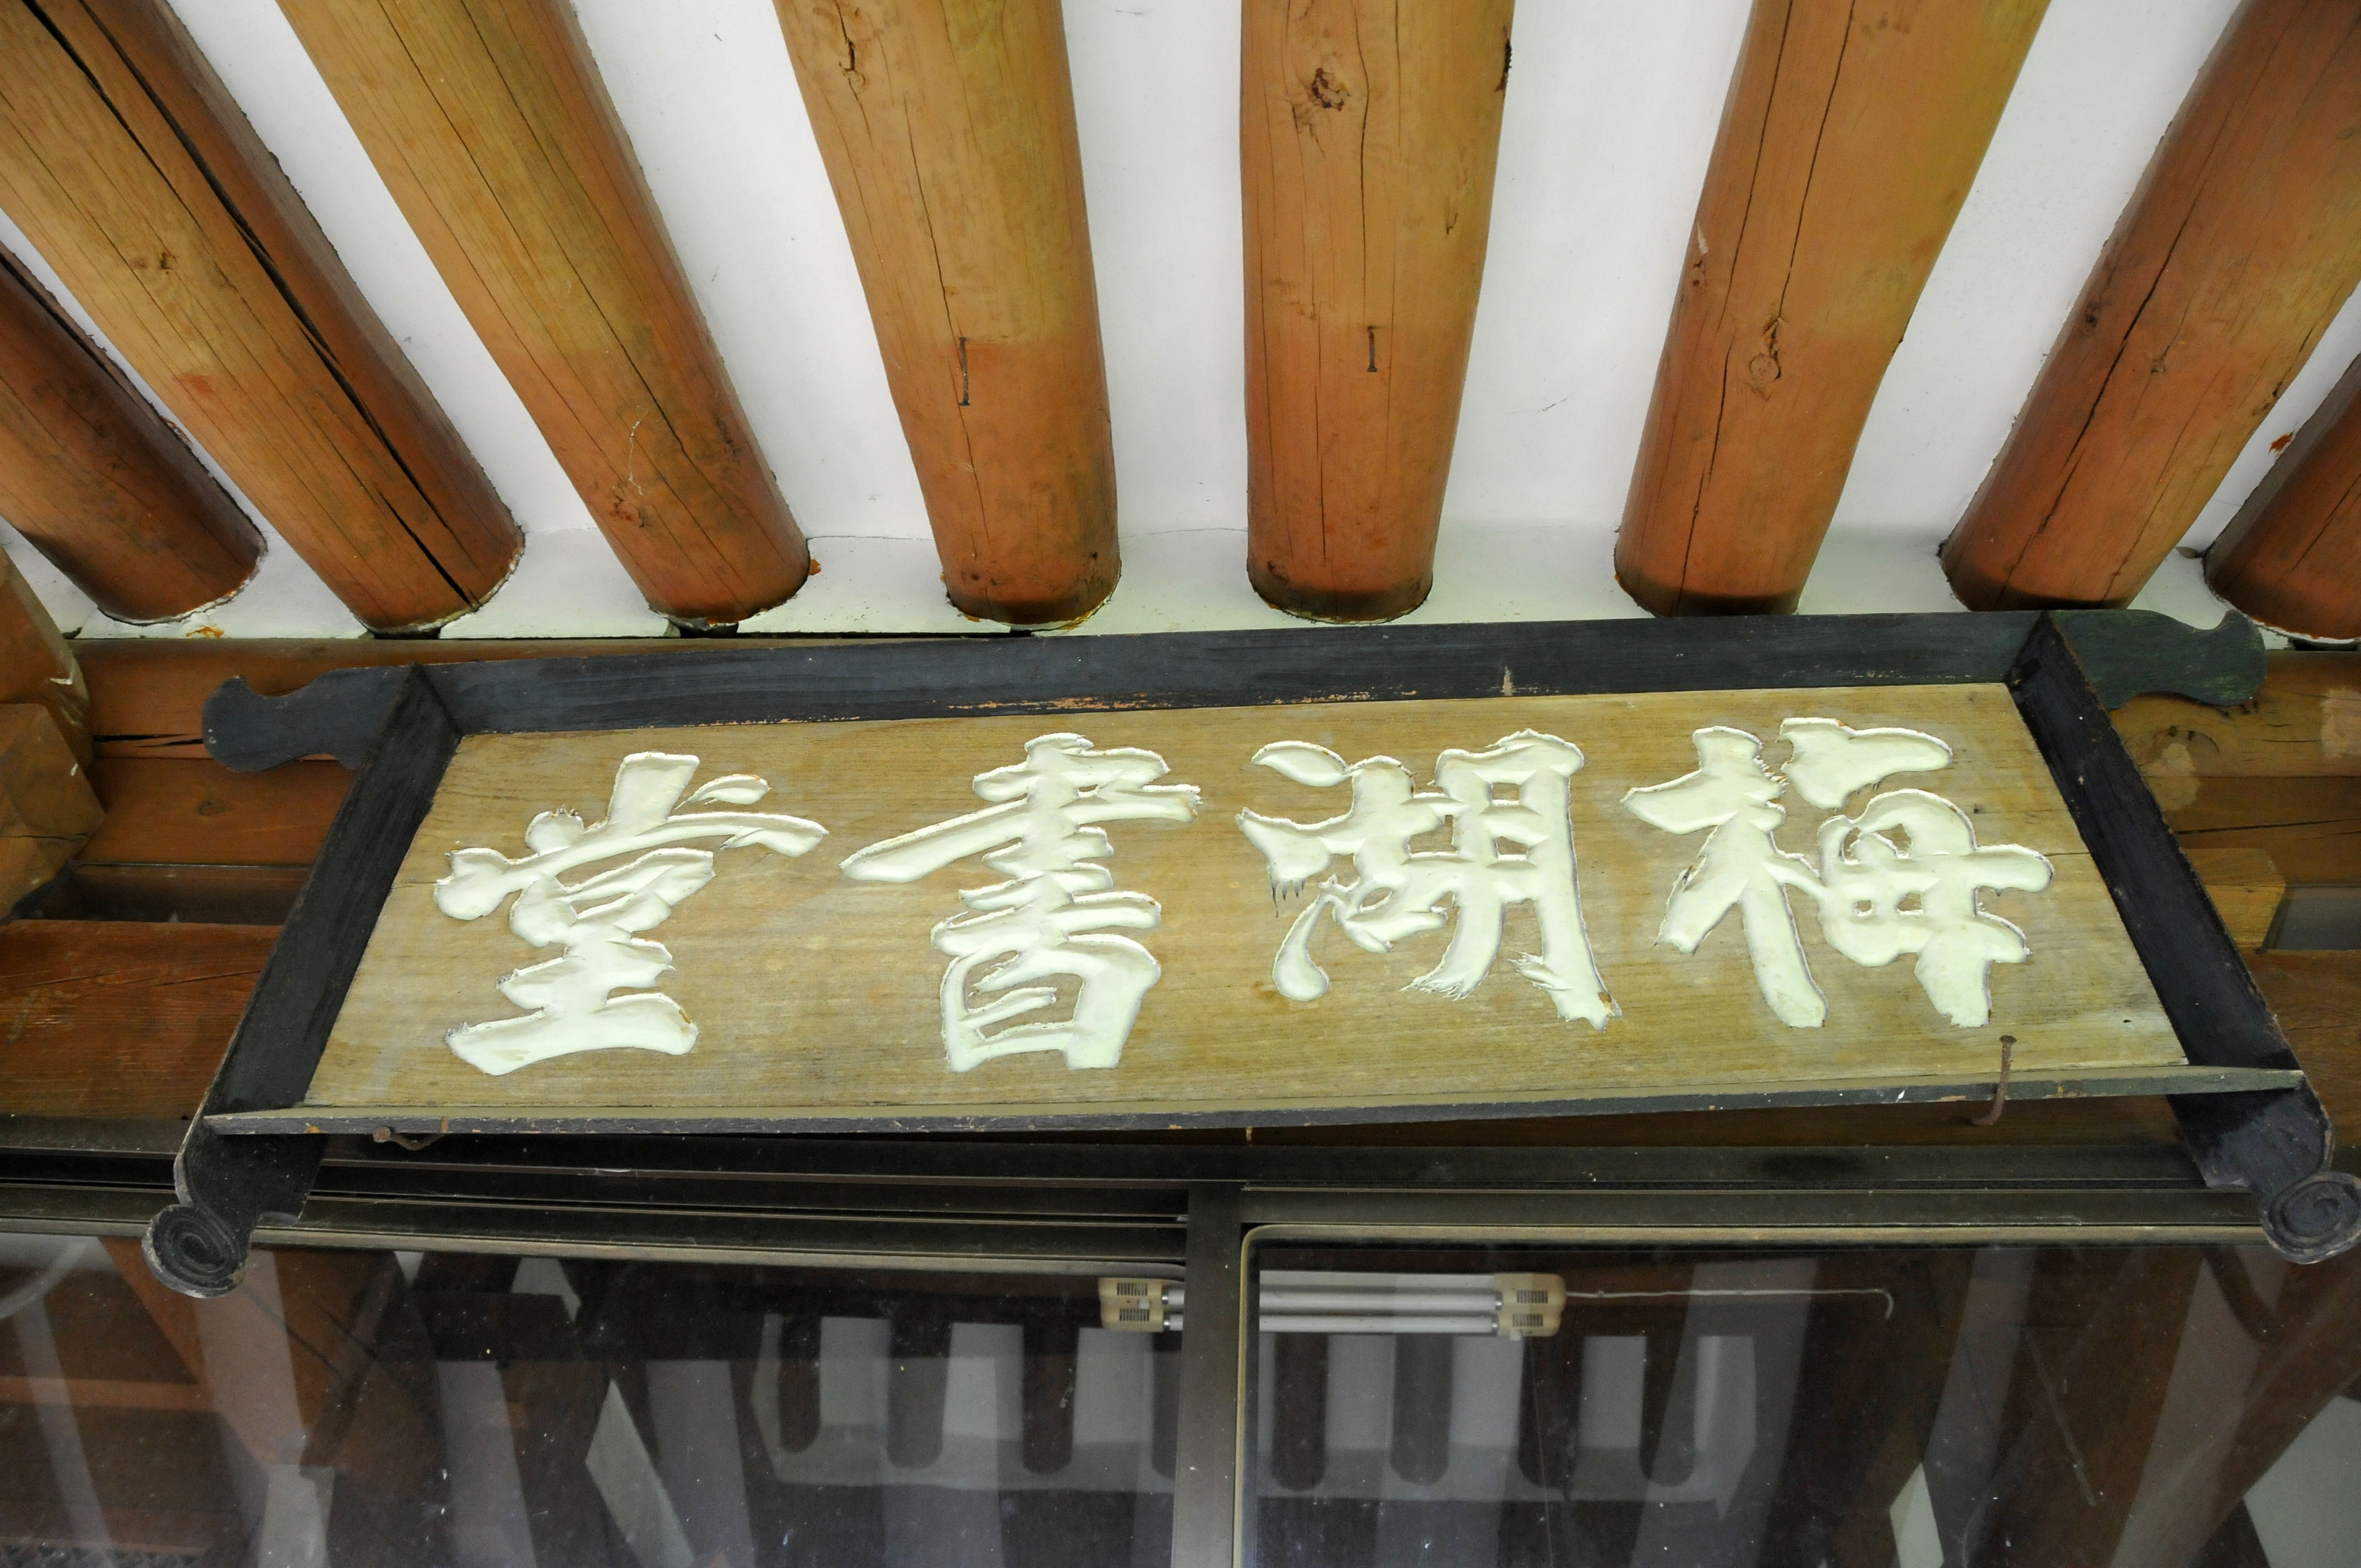 梅湖書堂